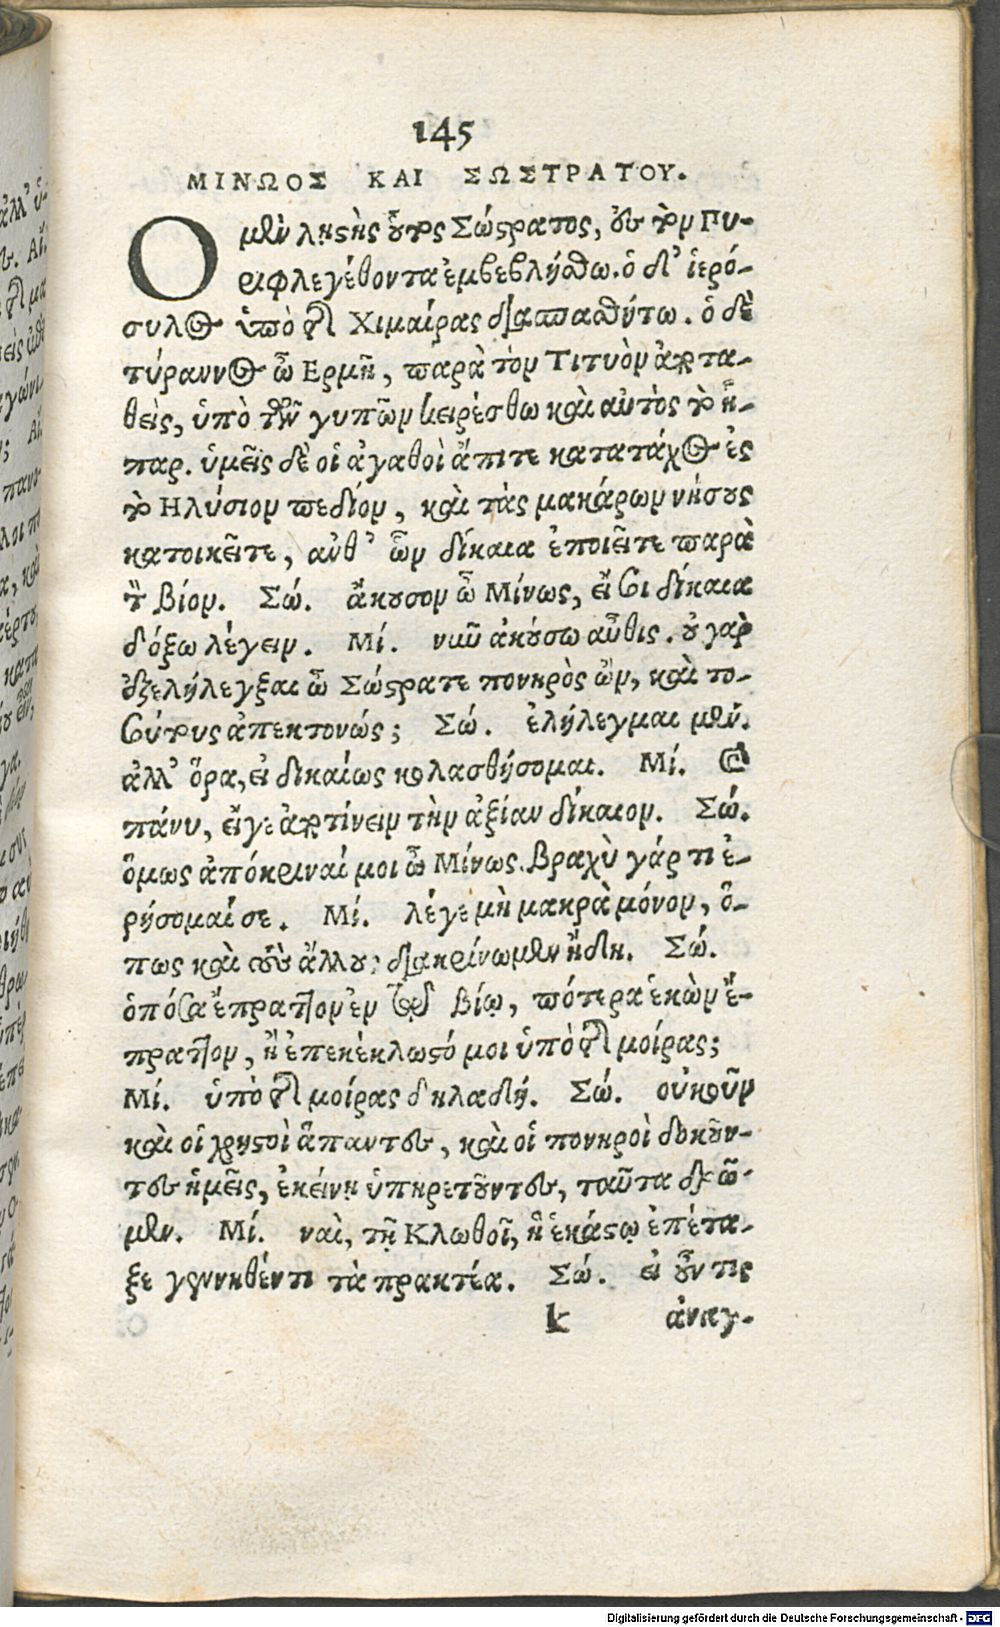 145
ΜΙΝΩΟΣ ΚΑΙ ΣΩΣΤΡΑΤΟΥ.
Ο μὲν λῃστὴς οὗτος Σώστρατος, ἐς τὸν Πυ-
ριφλεγέθοντα ἐμβεβλήσθω. ὁ δ' ἱερό-
συλος ὑπὸ τῆς Χιμαίρας διασπασθήτω. ὁ δὲ
τύραννος ὦ Ερμῆ, παρὰ τὸν Τιτυὸν ἀποτα-
θεὶς, ὑπὸ τῶν γυπῶν κειρέσθω καὶ αὐτὸς τὸ ἧ-
παρ. ὑμεῖς δὲ οἱ ἀγαθοὶ ἄπιτε κατατάχος ἐς
τὸ Ηλύσιον πεδίον, καὶ τὰς μακάρων νήσους
κατοικεῖτε, ἀνθ' ὧν δίκαια ἐποιεῖτε παρὰ
τὸν βίον. Σώ. ἄκουσον ὦ Μίνως, εἴ σοι δίκαια
δόξω λέγειν. Μί. νιῦ ἀκούσω αὖθις. οὐ γὰρ
ἐξελήλεγξαι ὦ Σώστρατε πονηρὸς ὢν, καὶ το-
σούτους ἀπεκτονώς; Σώ. ἐλήλεγμαι μὲν.
ἀλλ' ὅρα, εἰ δικαίως κολασθήσομαι. Μί. καὶ
πάνυ, εἴγε ἀποτίνειν τὴν ἀξίαν δίκαιον. Σώ.
ὅμως ἀπόκριναί μοι ὦ Μίνως. βραχὺ γάρ τι ἐ-
ρήσομαί σε. Μί. λέγε μὴ μακρὰ μόνον, ὅ-
πως καὶ τοὺς ἄλλους διακρίνωμεν ἤδη. Σώ.
ὁπόσα ἔπραττον ἐν τῷ βίῳ, πότερα ἑκὼν ἔ-
πραττον, ἢ ἐπεκέκλωστό μοι ὑπὸ τῆς μοίρας;
Μί. ὑπὸ τῆς μοίρας δηλαδή. Σώ. οὐκοῦν
καὶ οἱ χρηστοὶ ἅπαντες, καὶ οἱ πονηροὶ δοκοῦν-
τες ἡμεῖς, ἐκείνῃ ὑπηρετοῦντες, ταῦτα δρῶ-
μεν. Μί. ναὶ, τῇ Κλωθοῖ, ἣ ἑκάστῳ ἐπέτα-
ξε γεννηθέντι τὰ πρακτέα. Σώ. εἰ οὖν τις
k ἀναγ-
Digitalisierung gefördert durch die Deutsche Forschungsgemeinschaft - DFG